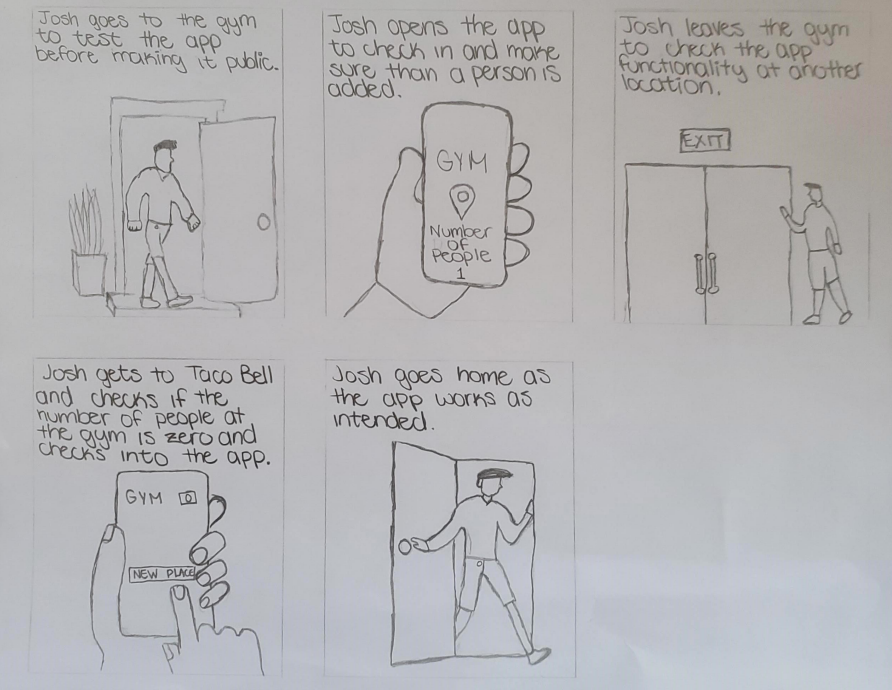 Josh goes to the gym
to test the app
before making it public.
Josh opens the app
to check in and make
sure than a person is
added.
GYM
Number
of
People
1
Josh leaves the gym
to check the app
functionality at another
location.
EXIT
Josh gets to Taco Bell
and checks if the
number of people at
the gym is zero and
checks into the app.
GYM 0
NEW PLACE
Josh goes home as
the app works as
intended.